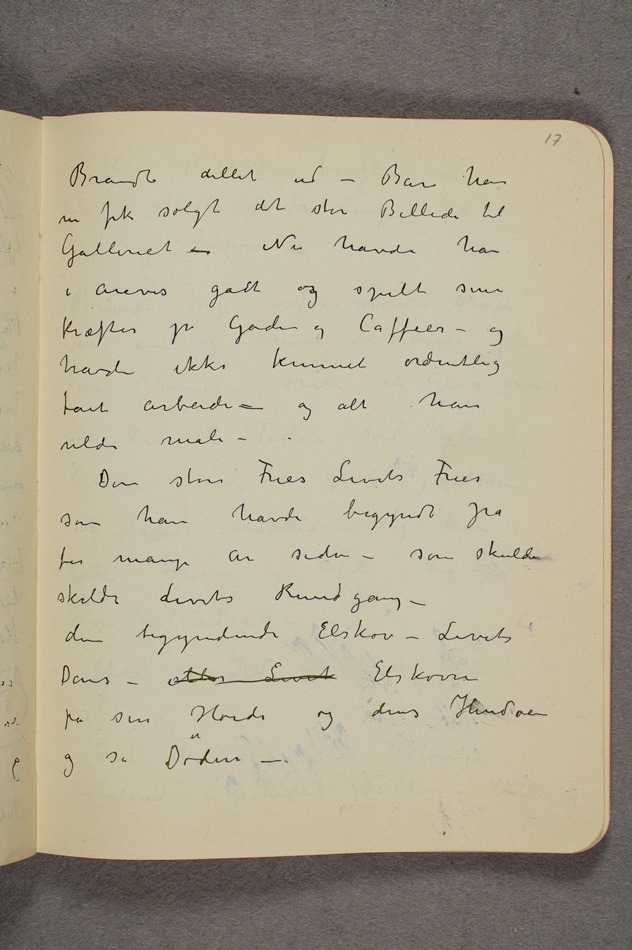 17
Brandt dellet ud – Bare han
nu fik solgt det store Billede til
Galleriet – Nu havde han
i årevis gådt og spildt sine
Kræfter på Gaden og Caffeer – og
havde ikke kunnet ordentlig
fået arbeide – og alt han
vilde male –
Den store Fries Livets Fries
som han havde begyndt på
for mange år siden – som skulde
skildre Livets Rundgang –
den begyndende Elskov – Livets
Dans – Elskoven
på sin Høide og dens Hendøen
og så Døden –